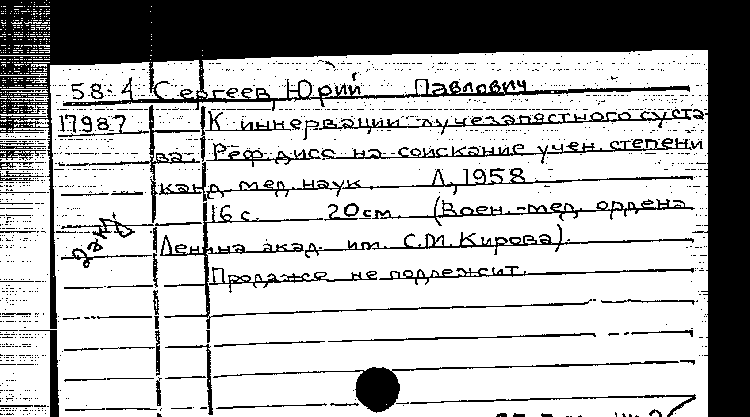 58-4 Сергеев, Юрий Павлович
17987 К иннервации лучезапястного суста-
ва. Реф. дисс. на соискание учен. степени
канд. мед. наук. Л., 1958.
16 с. 20 см. (Воен.-мед. ордена
Ленина акад. им. С.М. Кирова).
Продаже не подлежит.
2 экз